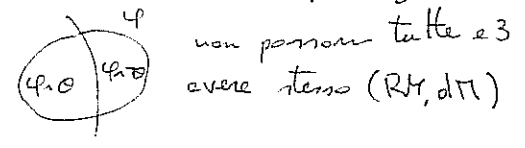 φ
non possono tutte e 3
φ∧θ φ∧¬θ
avere stesso (RM, dM)